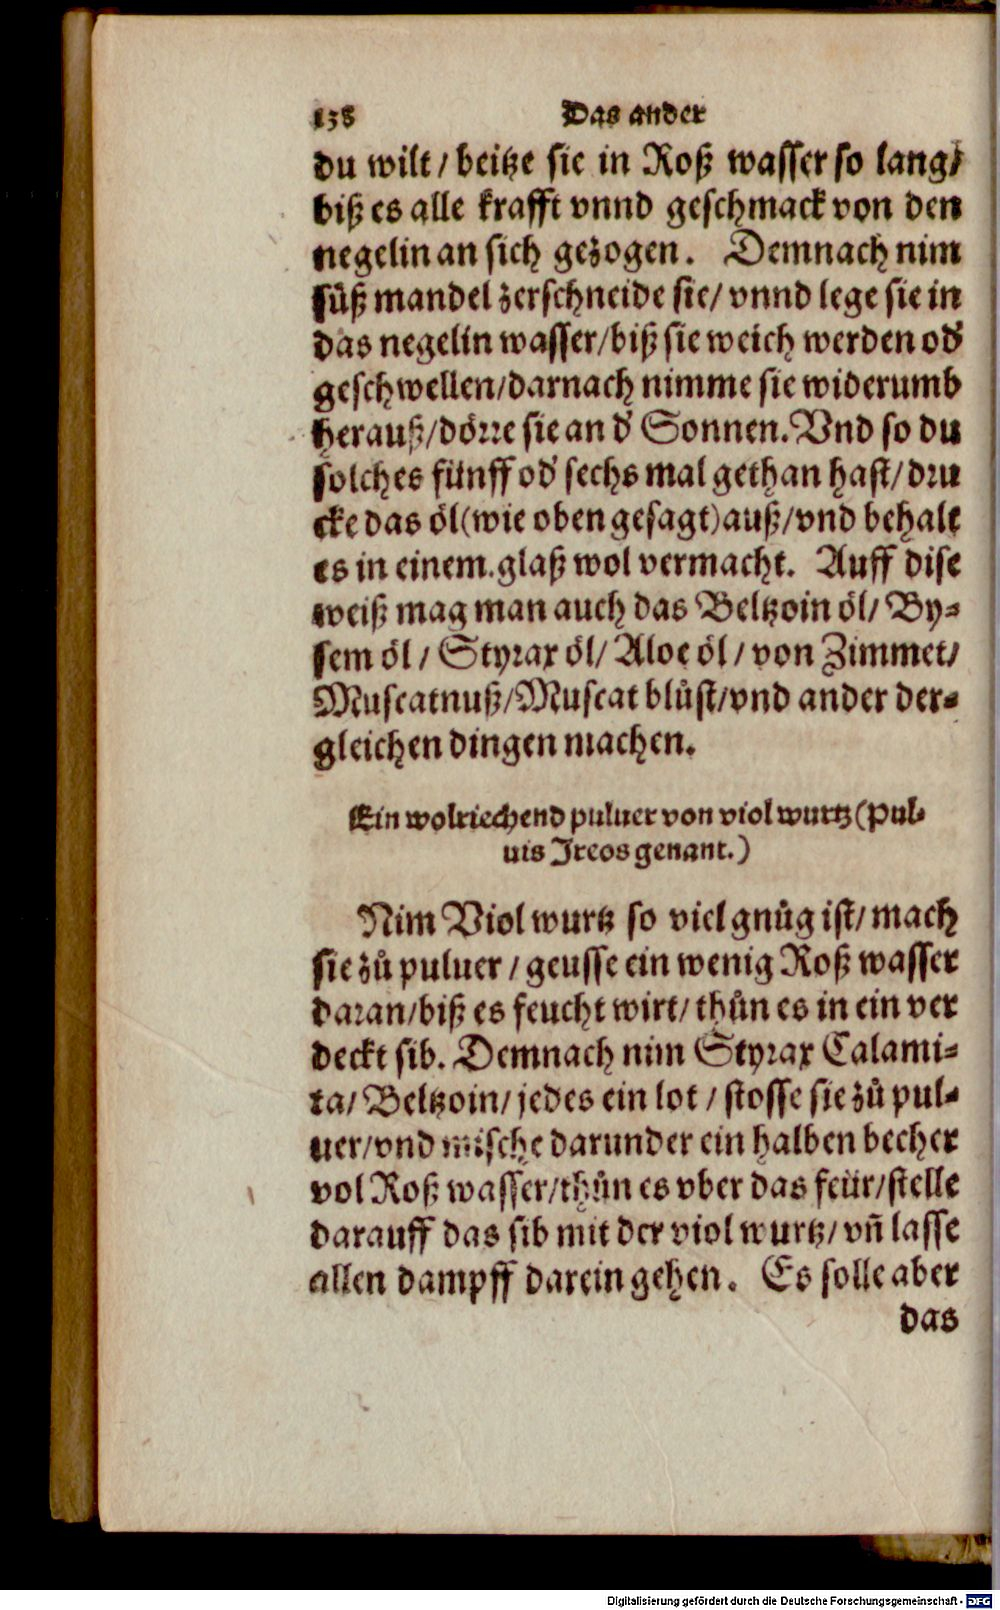 138 Das ander
du wilt / beitze sie in Roß wasser so lang/
biß es alle krafft vnnd geschmack von den
negelin an sich gezogen. Demnach nim
süß mandel zerschneide sie/ vnnd lege sie in
das negelin wasser/biß sie weich werden od̕
geschwellen/darnach nimme sie widerumb
herauß/dörre sie an d̕ Sonnen. Vnd so du
solches fünff od̕ sechs mal gethan hast/ dru
cke das öl(wie oben gesagt)auß/vnd behalt
es in einem.glaß wol vermacht. Auff dise
weiß mag man auch das Beltzoin öl/ By-
sem öl / Styrax öl/ Aloe öl / von Zimmet/
Muscatnuß/Muscat blůst/vnd ander der-
gleichen dingen machen.
Ein wolriechend puluer von viol wurtz (Pul-
uis Jreos genant.)
Nim Viol wurtz so viel gnůg ist/ mach
sie zů puluer / geusse ein wenig Roß wasser
daran/biß es feucht wirt/ thůn es in ein ver
deckt sib. Demnach nim Styrax Calami-
ta/ Beltzoin/ jedes ein lot / stosse sie zů pul-
uer/vnd mische darunder ein halben becher
vol Roß wasser/thůn es vber das feür/stelle
darauff das sib mit der viol wurtz/ vñ lasse
allen dampff darein gehen. Es solle aber
das
Digitalisierung gefördert durch die Deutsche Forschungsgemeinschaft - DFG